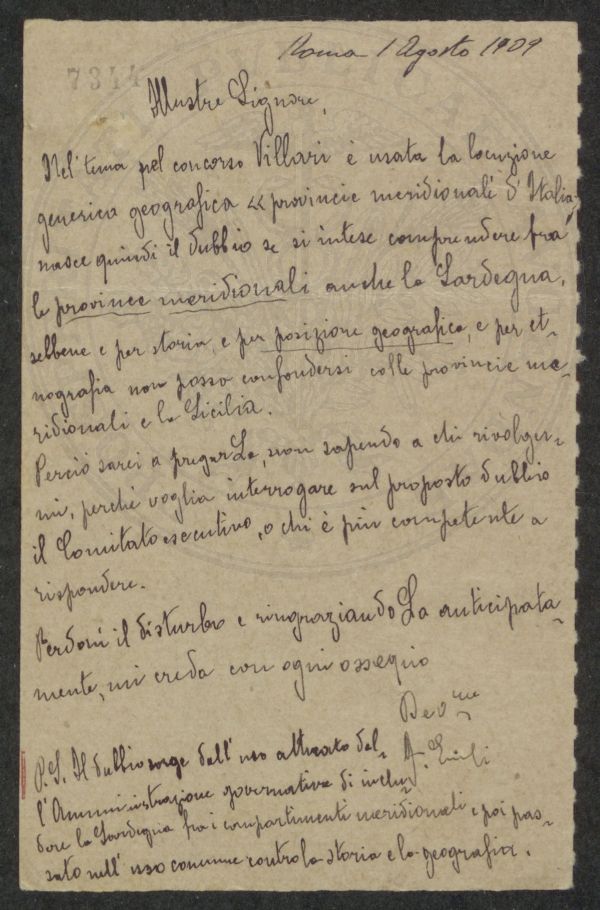 Roma 1 Agosto 1909
7344
Illustre Signore,
Nel tema pel concorso Villari è usata la locuzione
generica geografica « provincie meridionali d'Italia,
nasce quindi il dubbio se si intese comprendere fra
le province meridionali anche la Sardegna,
sebbene e per storia, e per posizione geografica, e per et-
nografia non possa confondersi colle provincie me-
ridionali e la Sicilia.
Perciò sarei a pregarLa, non sapendo a chi rivolger-
mi, perché voglia interrogare sul proposto dubbio
il Comitato esecutivo, o chi è più competente a
rispondere.
Perdoni il disturbo e ringraziandoLa anticipata-
mente, mi creda con ogni ossequio
Devmo
P.S. Il dubbio sorge dall'uso attuato del-
l'Amministrazione governativa di inclu-
dere la Sardegna fra i compartimenti meridionali e poi pas-
sato nell'uso comune contro la storia e la geografia.